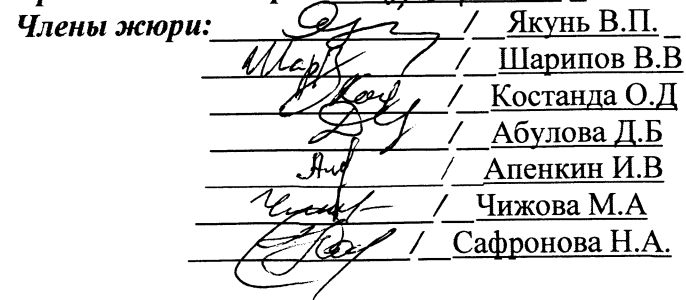 Члены жюри: / Якунь В.П.
Шар / Шарипов В.В
/ Костанда О.Д
/ Абулова Д.Б
/ Апенкин И.В
/ Чижова М.А
/ Сафронова Н.А.